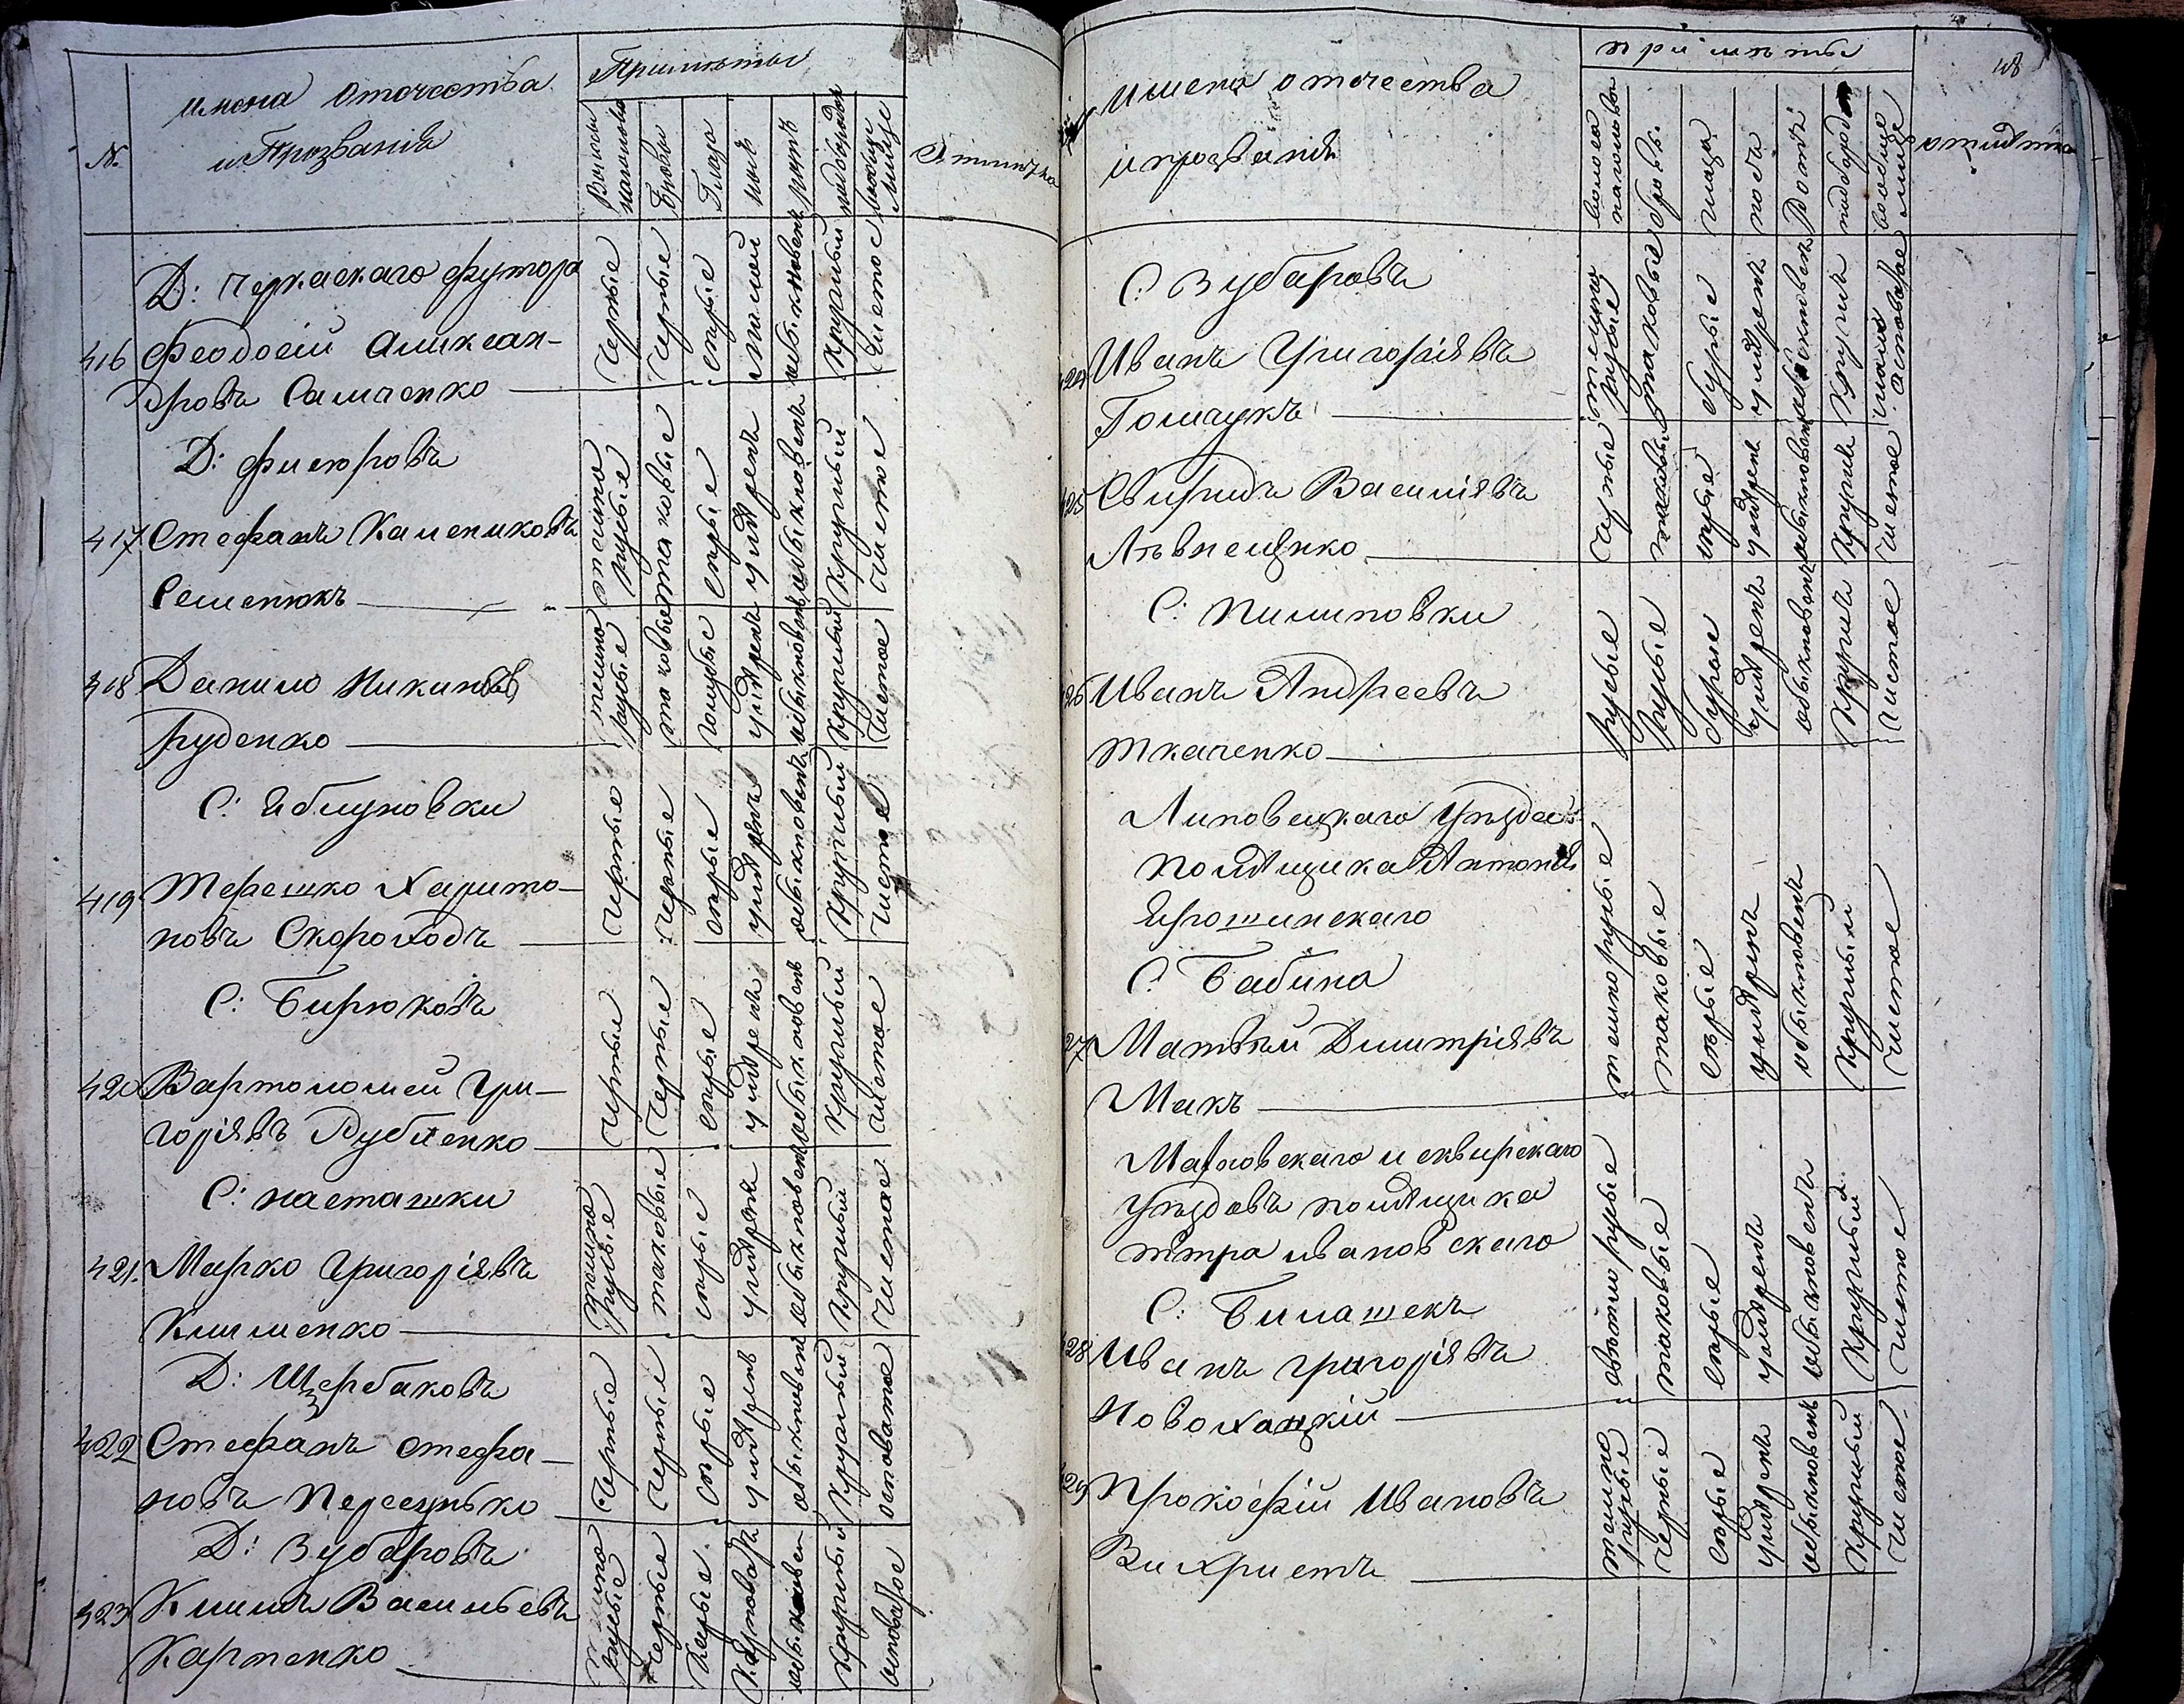 №
имена отечества
и Прозвания
Приметы
Волосы на голове
Брови
Глаза
носъ
ротъ
подбородокъ
вообще Лице
Отметка
Д: Черкаскаго футора
416 Феодосій Аликсан-
дровъ Самченко
Черные черные серые обыкновен круглый чистое
Д: Фиюровъ
417 Стефанъ
Семенюкъ
темнорусые таковые серые умеренъ обыкновенъ круглый чистое
418 Данило
Руденко
темнорусые таковые голубые умеренъ обыкновенъ круглый чистое
С: Яблуновки
419 Терешко Харито-
новъ Скороходъ
черные черные серые умеренъ обыкновенъ круглый чистое
С: Бирюковъ
420 Вартоломей Гри-
горіявъ
черные черные серые умеренъ обыкновенъ круглый чистое
С: насташки
421 Марко Григоріявъ
Клименко
темнорусые таковые серые умеренъ обыкновенъ круглый чистое
Д: Щербаковъ
422 Стефанъ Стефа-
новъ Пересунько
черные черные серые умеренъ обыкновенъ круглый осповатое
Д: Зубаровъ
423 Климъ Васильевъ
Карпенко
темнорусые черные карые обыкновен круглый
имена отечества
и прозвания
приметы
волоса на голове
брови
глаза
носъ
Ротъ
подбородокъ
вообще лице
отметка
С. Зубаровъ
424 Иванъ Григоріявъ
Гомацукъ
темнорусые таковые бурые умеренъ обыкновенъ круглъ
425 Свиридъ Василіявъ
черные таковые серые умеренъ обыкновенъ круглъ чистое
С: Пилиповки
26 Иванъ Андреевъ
Ткаченко
русые русые бурые умеренъ обыкновенъ круглъ чистое
Липовецкаго Уезда
помещика Антона
Ярошинскаго
С. Бабина
27 Матвей Димитріявъ
Макъ
темнорусые таковые серые умеренъ обыкновенъ круглый чистое
и сквирскаго
Уездовъ помещика
ивановскаго
С: Билашекъ
28 Иванъ григоріявъ
Новохацкій
светлорусые таковые серые умеренъ обыкновенъ круглый чистое
29 Прокофій Ивановъ
Вихристъ
темнорусые черные серые умеренъ обыкновенъ круглый чистое